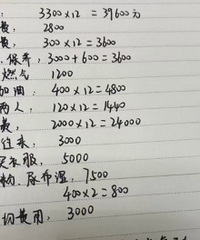 : 3300×12 = 39600元
费: 2800
费, 300×12 = 3600
保养, 3000+600 = 3600
燃气 1200
加油: 400×12 = 4800
两人, 120×12 = 1440
费, 2000×12 = 24000
往来, 3000
买衣服, 5000
粉, 尿布湿, 7500
400×2 = 800
费用: 3000